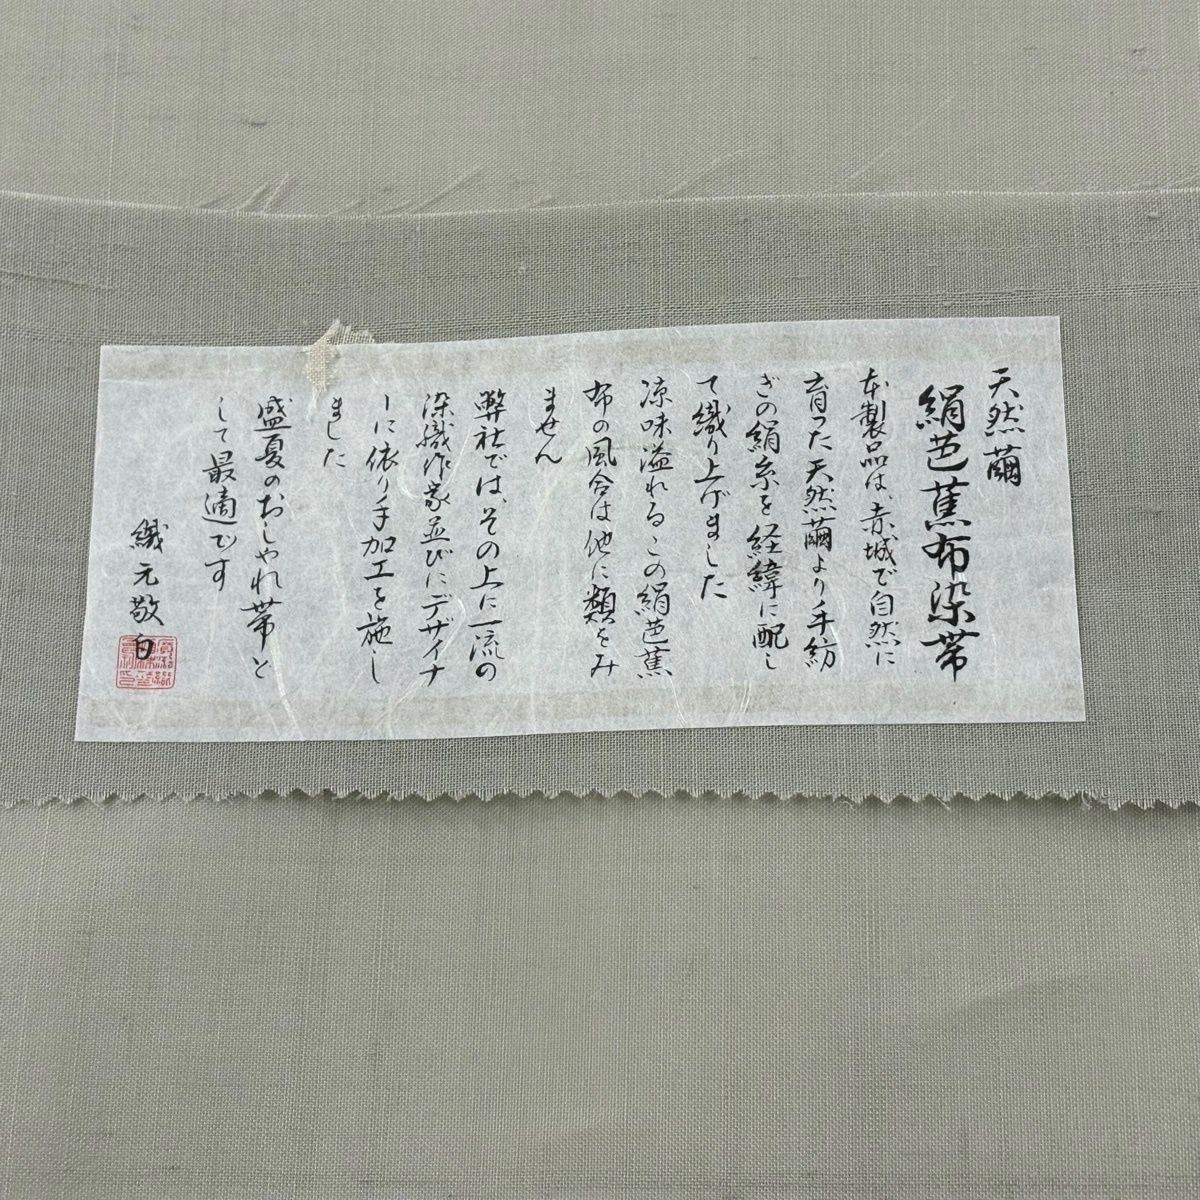 天然繭
絹芭蕉布染帯
本製品は、赤城で自然に
育った天然繭より手紡
ぎの絹糸を経緯に配し
て織り上げました
涼味溢れるこの絹芭蕉
布の風合は他に類をみ
ません
弊社では、その上に一流の
染織作家並びにデザイナ
ーに依り手加工を施し
ました
盛夏のおしゃれ帯と
して最適です
織元敬白